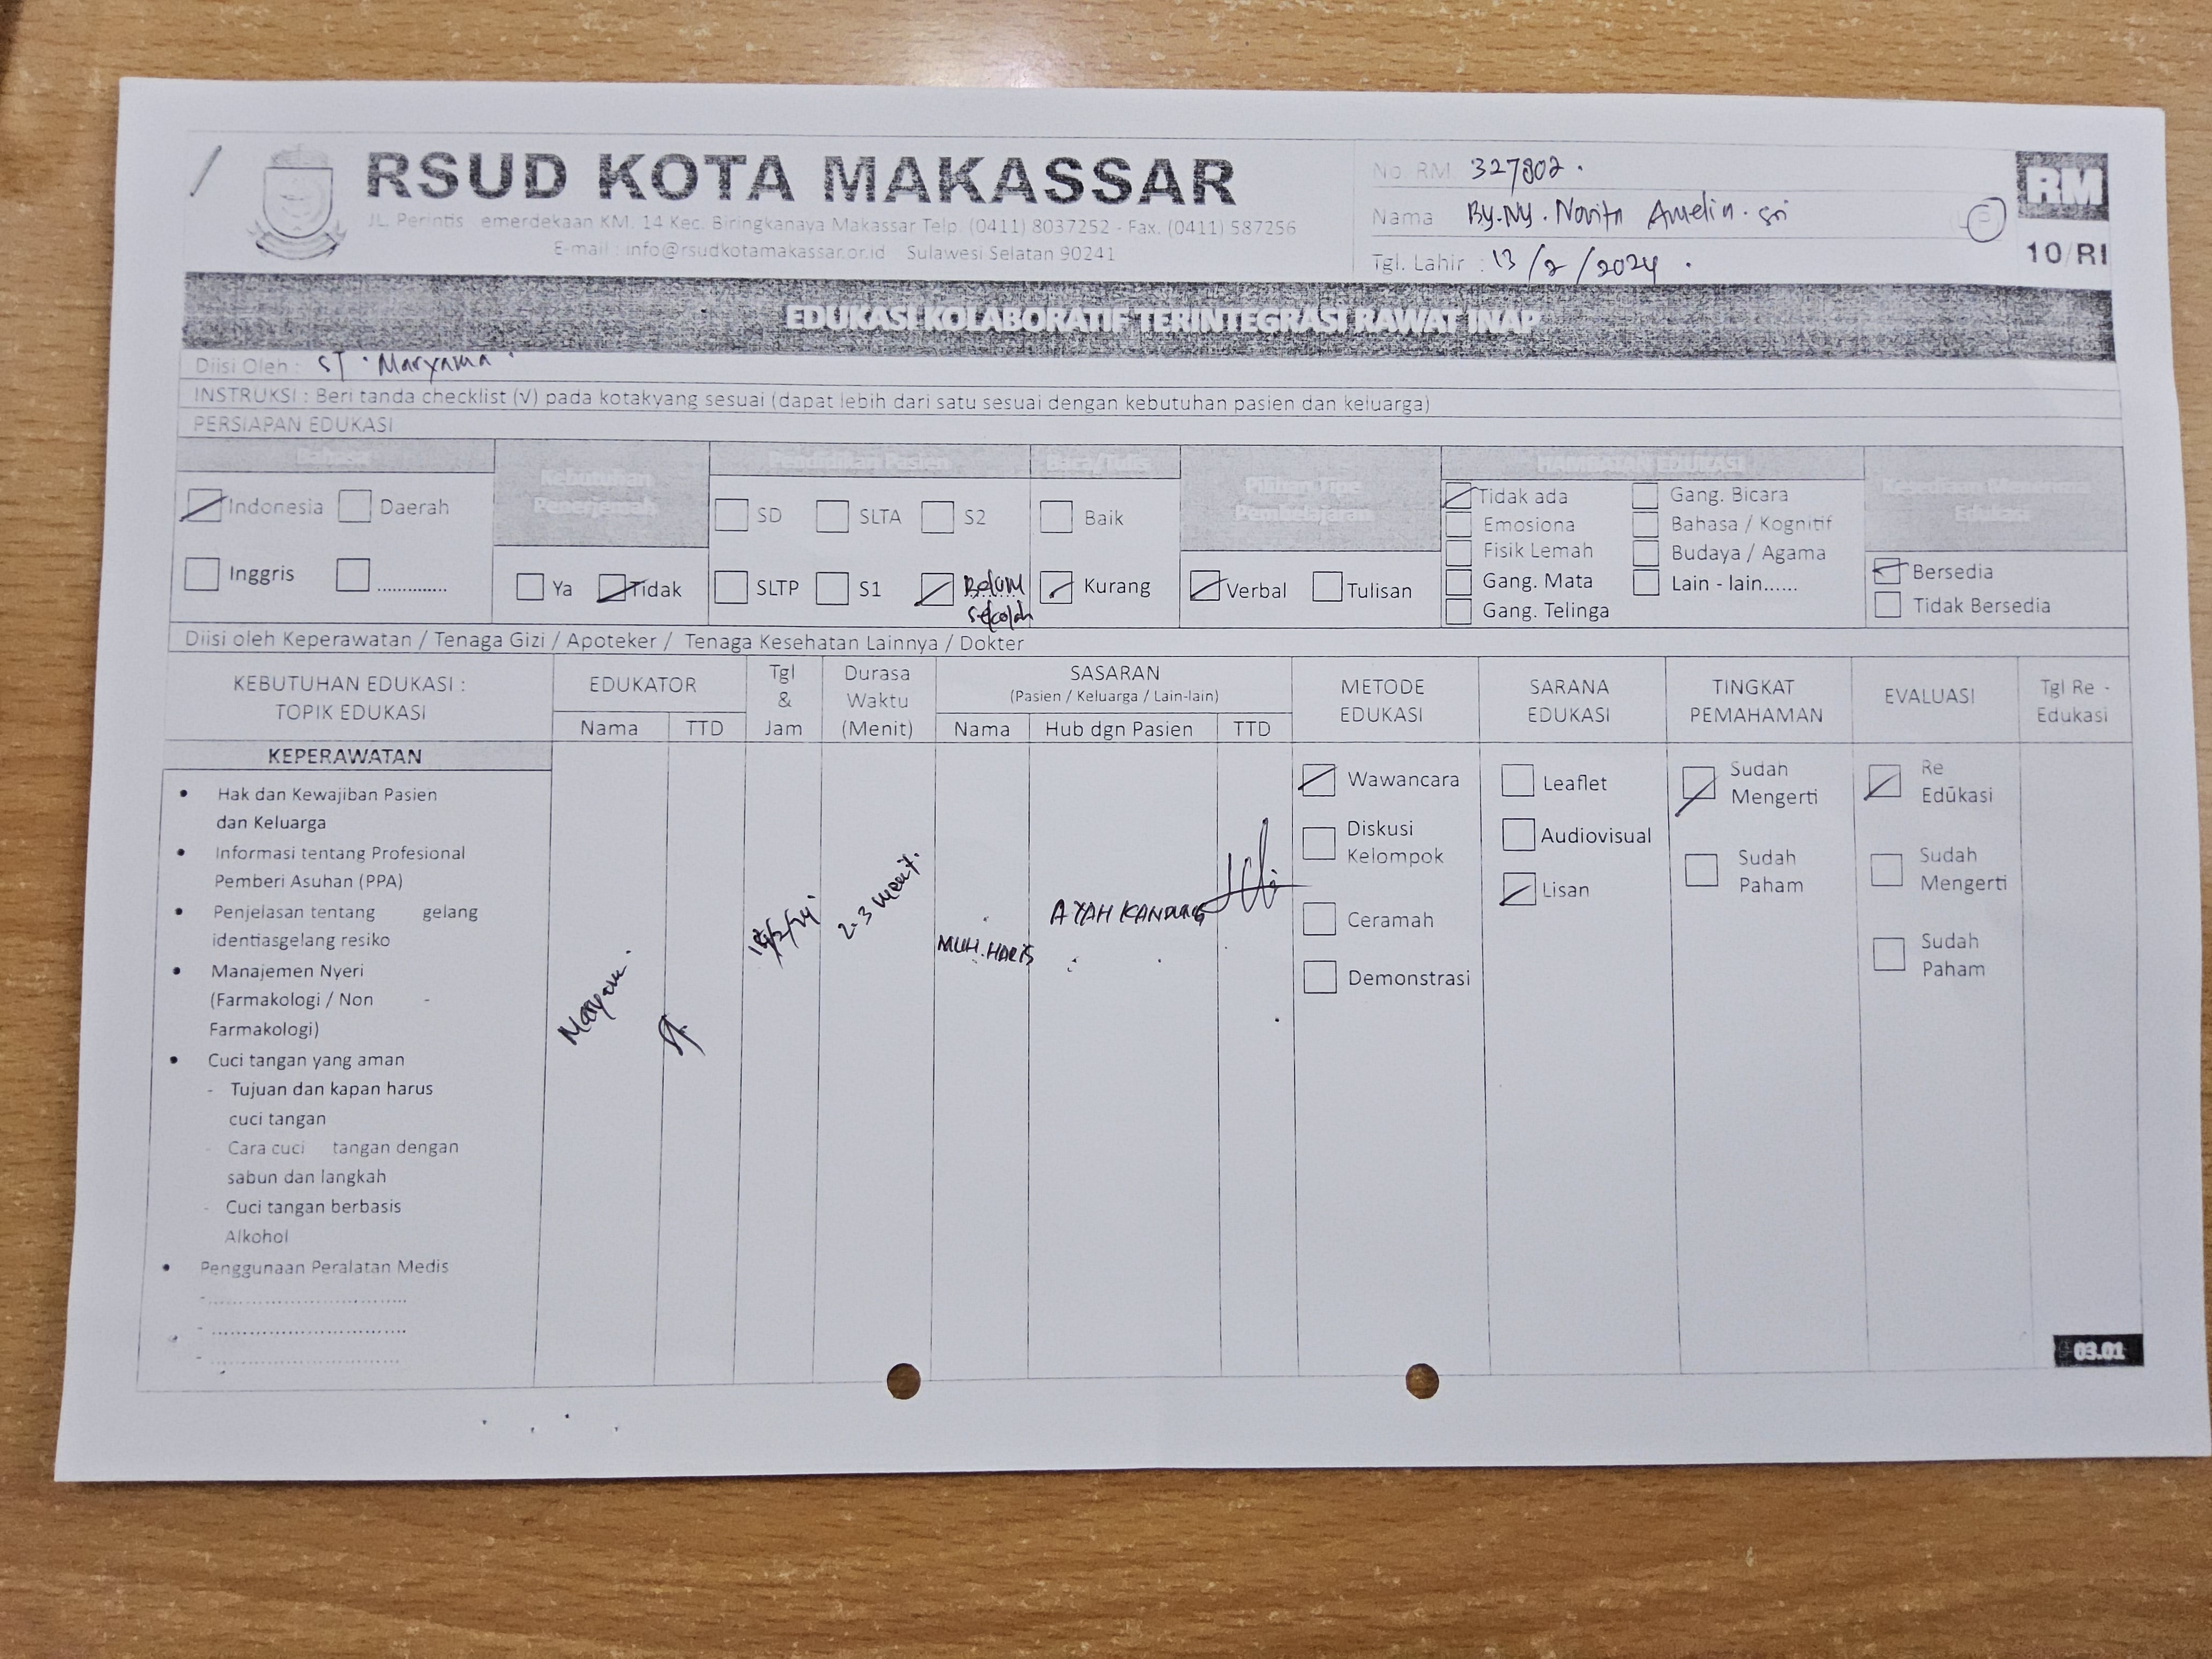 RSUD KOTA MAKASSAR
JL. Perintis emerdekaan KM. 14 Kec. Biringkanaya Makassar Telp. (0411) 8037252 - Fax. (0411) 587256
E-mail : info@rsudkotamakassar.or.id Sulawesi Selatan 90241
No. RM 327802 .
Nama By. Ny. Novita Amelia . Sri
P
Tgl. Lahir : 13 / 2 / 2024 .
RM
10/RI
EDUKASI KOLABORATIF TERINTEGRASI RAWAT INAP
Diisi Oleh : ST . Maryama .
INSTRUKSI : Beri tanda checklist (√) pada kotakyang sesuai (dapat lebih dari satu sesuai dengan kebutuhan pasien dan keluarga)
PERSIAPAN EDUKASI
Bahasa
Indonesia Daerah
Inggris .............
Kebutuhan
Penerjemah
Ya Tidak
Pendidikan Pasien
SD SLTA S2
SLTP S1 Belum
sekolah
Baca/Tulis
Baik
Kurang
Pilihan Tipe
Pembelajaran
Verbal Tulisan
HAMBATAN EDUKASI
Tidak ada Gang. Bicara
Emosiona Bahasa / Kognitif
Fisik Lemah Budaya / Agama
Gang. Mata Lain - lain......
Gang. Telinga
Kesediaan Menerima
Edukasi
Bersedia
Tidak Bersedia
Diisi oleh Keperawatan / Tenaga Gizi / Apoteker / Tenaga Kesehatan Lainnya / Dokter
KEBUTUHAN EDUKASI :
TOPIK EDUKASI
EDUKATOR
Nama TTD
Tgl
&
Jam
Durasa
Waktu
(Menit)
SASARAN
(Pasien / Keluarga / Lain-lain)
Nama Hub dgn Pasien TTD
METODE
EDUKASI
SARANA
EDUKASI
TINGKAT
PEMAHAMAN
EVALUASI
Tgl Re -
Edukasi
KEPERAWATAN
• Hak dan Kewajiban Pasien
dan Keluarga
• Informasi tentang Profesional
Pemberi Asuhan (PPA)
• Penjelasan tentang gelang
identiasgelang resiko
• Manajemen Nyeri
(Farmakologi / Non -
Farmakologi)
• Cuci tangan yang aman
- Tujuan dan kapan harus
cuci tangan
- Cara cuci tangan dengan
sabun dan langkah
- Cuci tangan berbasis
Alkohol
• Penggunaan Peralatan Medis
- ..................................
- ..................................
- ..................................
Maryam
/2/24
2.3 menit.
MUH. HARIS
AYAH KANDUNG
Wawancara
Diskusi
Kelompok
Ceramah
Demonstrasi
Leaflet
Audiovisual
Lisan
Sudah
Mengerti
Sudah
Paham
Re
Edukasi
Sudah
Mengerti
Sudah
Paham
03.01